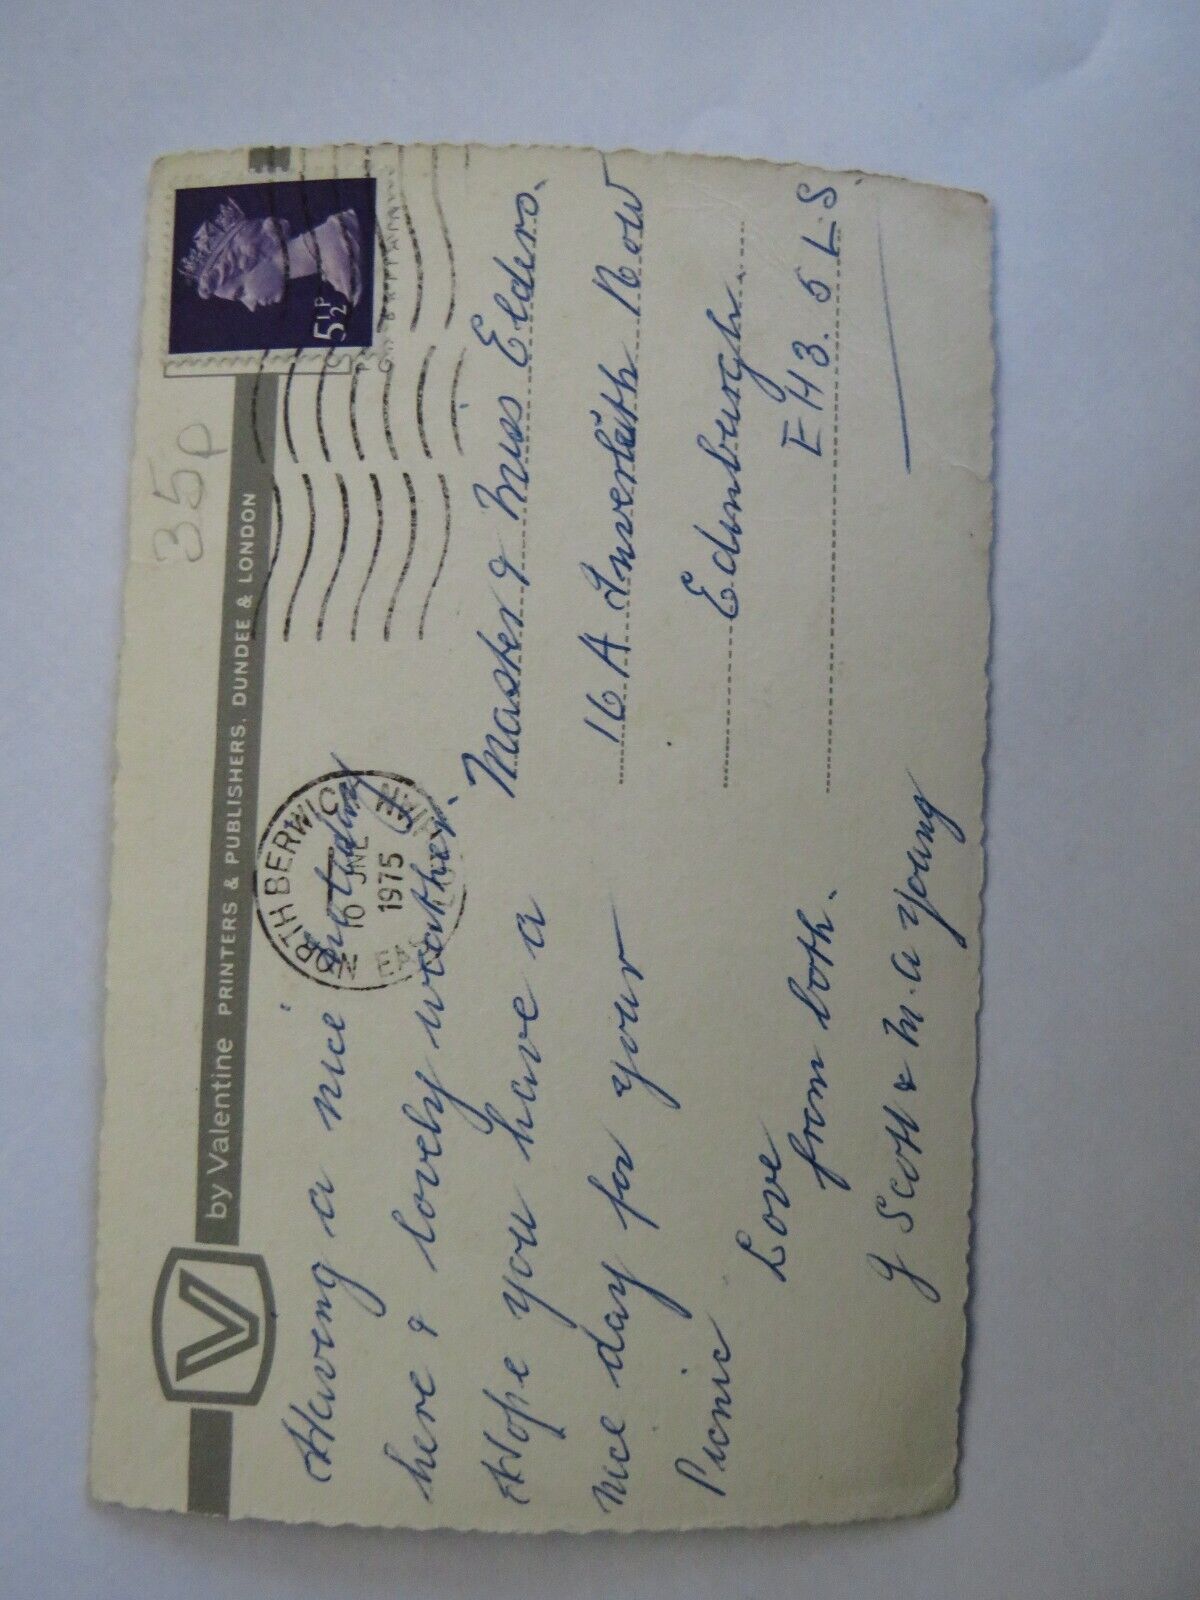 35p
V by Valentine PRINTERS & PUBLISHERS, DUNDEE & LONDON
5½P
NORTH BERWICK
10 JNE
1975
Having a nice holiday
here & lovely weather.
Hope you have a
nice day for your
Picnic
Love
from both.
J Scott & M. A Young
Master & Miss Elders.
16 A Inverleith Row
Edinburgh.
EH3. 5LS